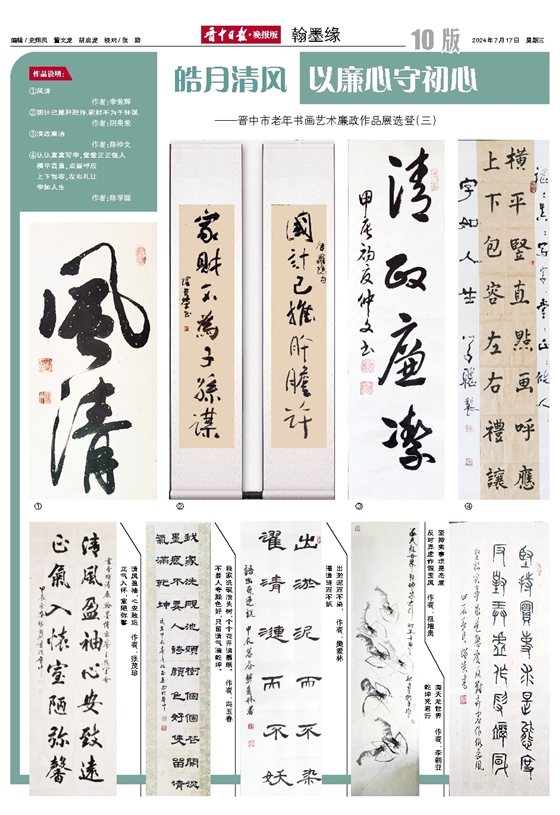 编辑/史翔凤 董文龙 胡启龙 校对/张璐
晋中日报·晚报版
翰墨缘
10版
2024年7月17日 星期三
皓月清风 以廉心守初心
——晋中市老年书画艺术廉政作品展选登(三)
作品说明：
①风清
作者：李荣辉
②国计已推肝胆许，家财不为子孙谋
作者：
③清政廉洁
作者：陈仲文
④认认真真写字，堂堂正正做人
横平竖直，点画呼应
上下包容，左右礼让
字如人生
作者：陈学聪
风清
①
国计已推肝胆许
家财不为子孙谋
②
清政廉洁
甲辰初夏仲文书
③
横平竖直點画呼應
上下包容左右禮讓
字如人生
④
清風盈袖心安致遠
正氣入懷室陋弥馨
清风盈袖，心安致远
正气入怀，室陋弥馨
作者：张茂珍
我家洗砚池头树，个个花开淡墨痕。
不要人夸颜色好，只留清气满乾坤。
作者：冯玉春
出淤泥而不染
濯清漣而不妖
出淤泥而不染，
濯清涟而不妖
作者：樊爱林
海天龙世界
乾坤凭君行
作者：李鹤亚
坚持实事求是态度
反对弄虚作假歪风
作者：